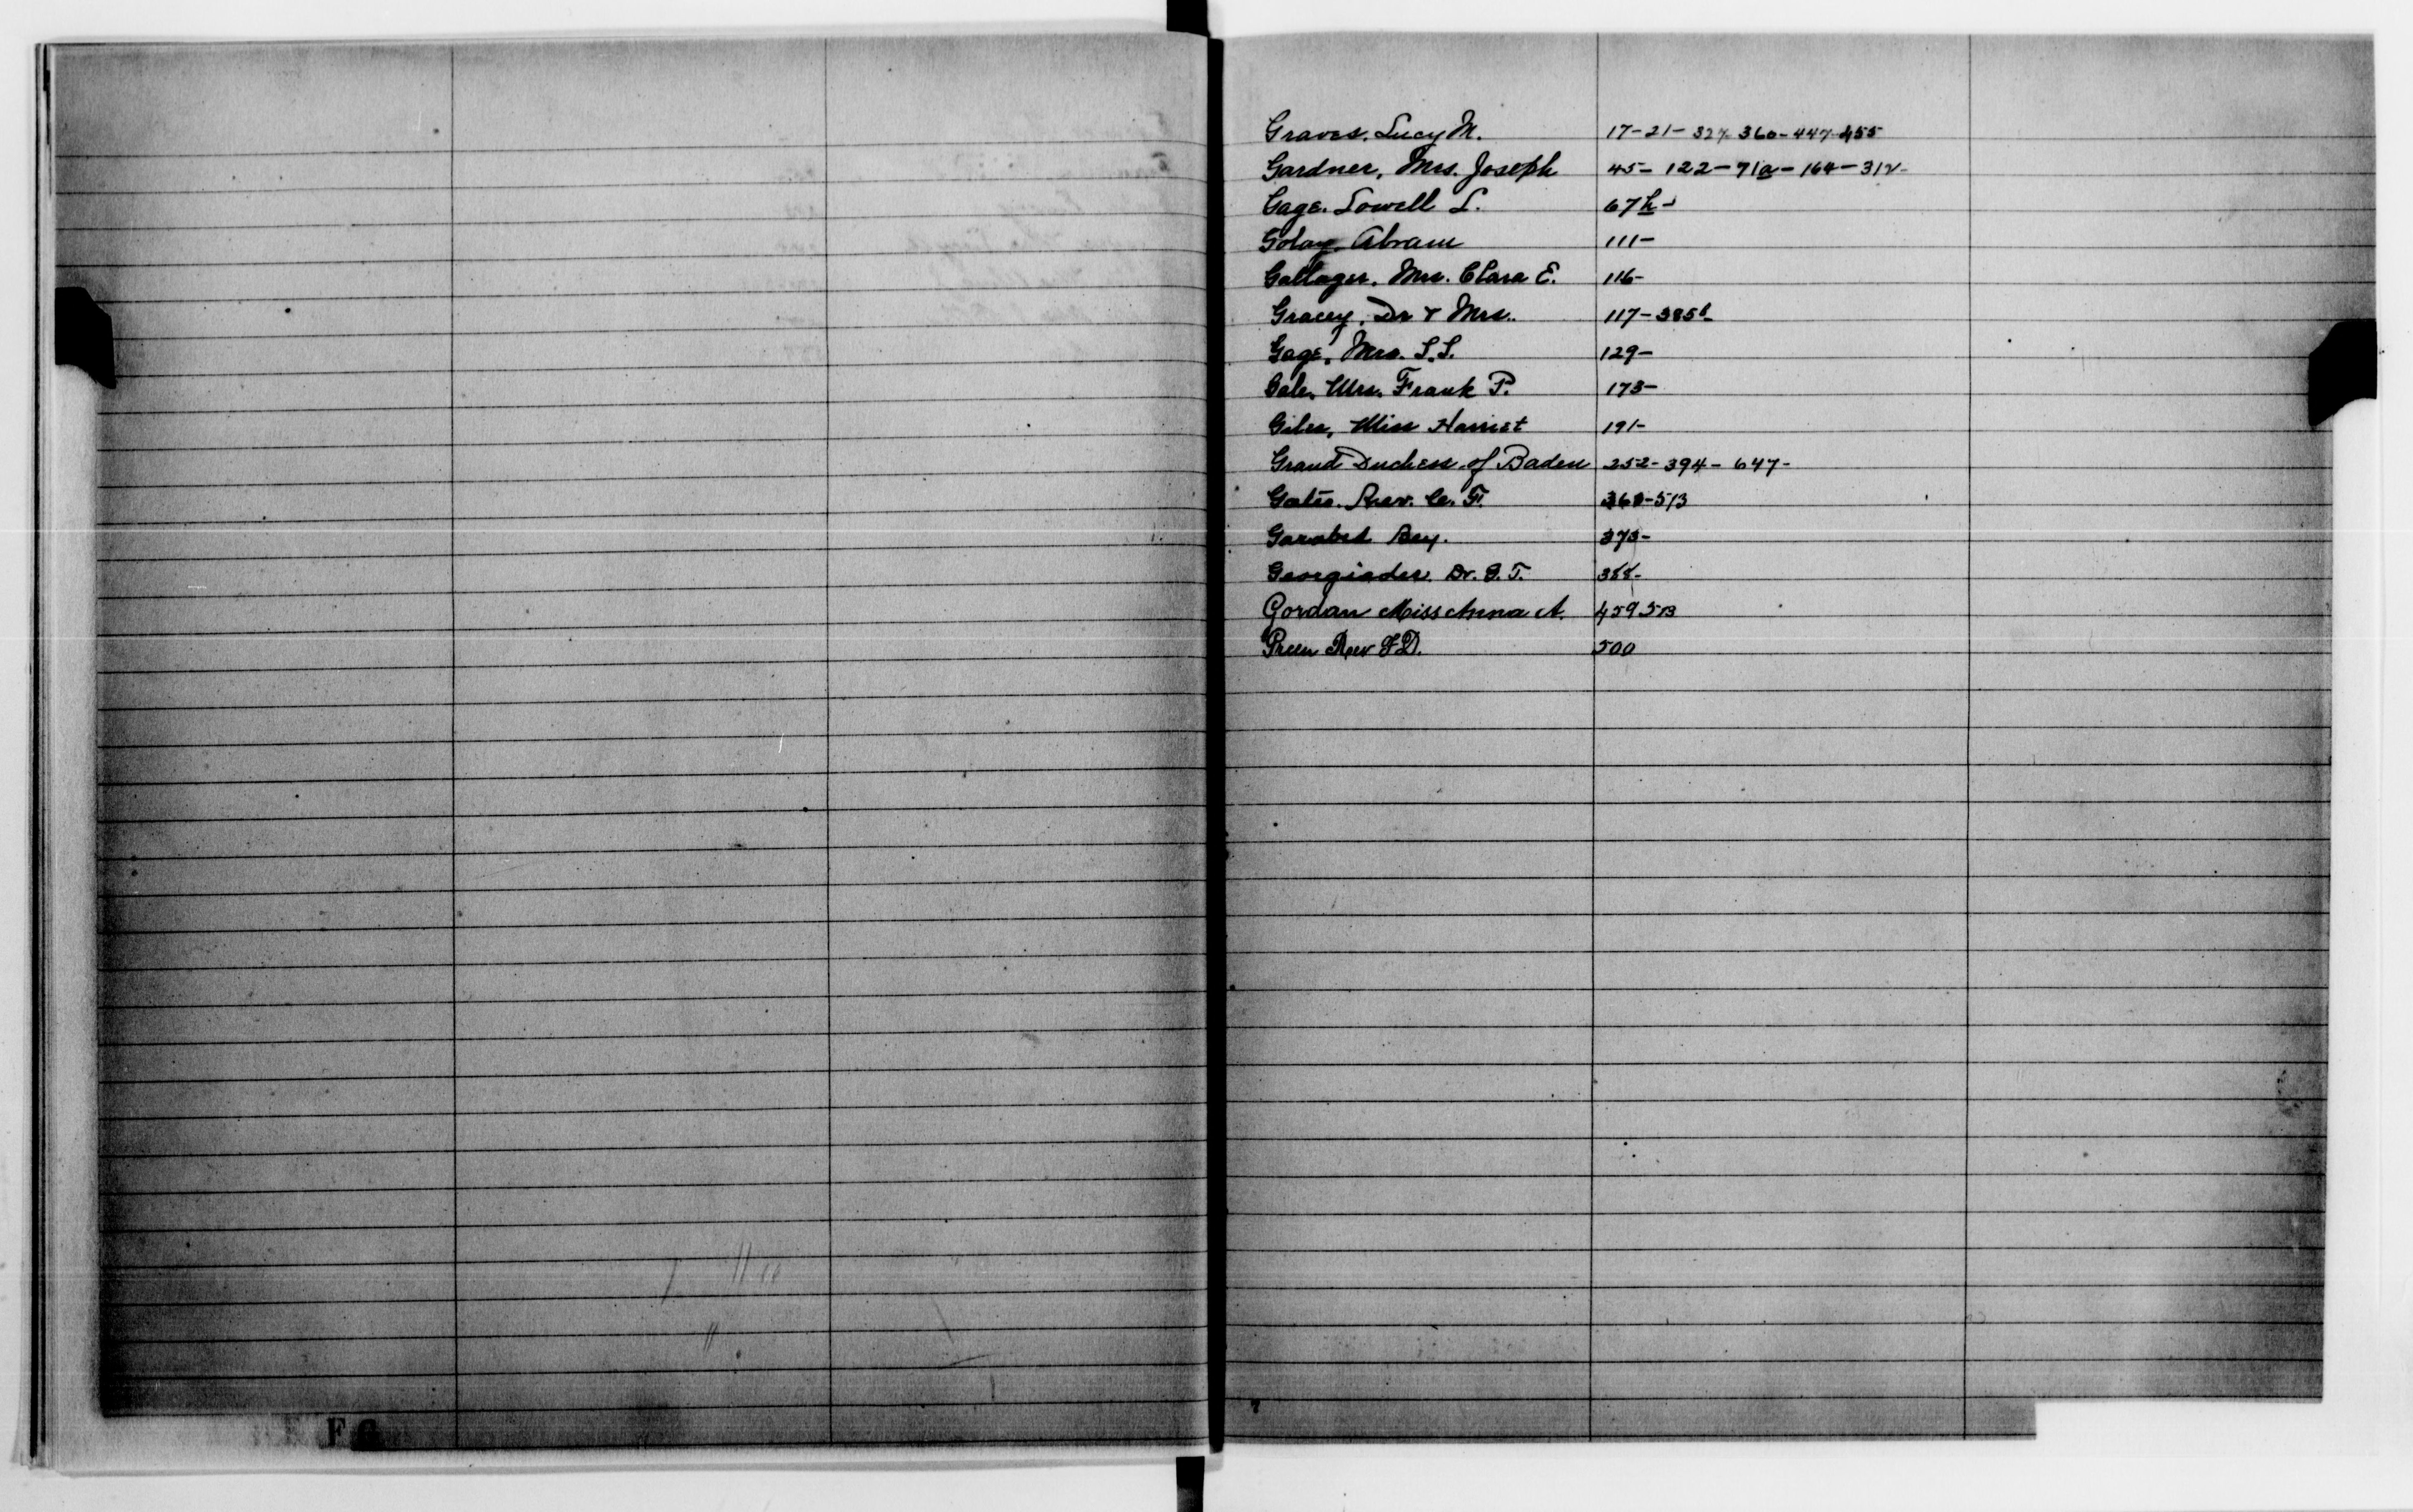 Graves. Lucy M. 17-21-327-360-447-455
Gardner, Mrs. Joseph 45-122-71a-164-312-
Gage. Lowell L. 67h-
Golay. Abram 111-
Gallager. Mrs. Clara E. 116-
Gracey, Dr & Mrs. 117-385b-
Gage, Mrs. S.S. 129-
Gale, Mrs. Frank P. 173-
Giles, Miss Harriet 191-
Grand Duchess of Baden 252-394-647-
Gates. Rev. C. F. 368-513
Garabed Bey. 373-
Georgiades. Dr. G. T. 388-
Gordan Miss Anna A. 459 513
Green Rev F D. 500
F G